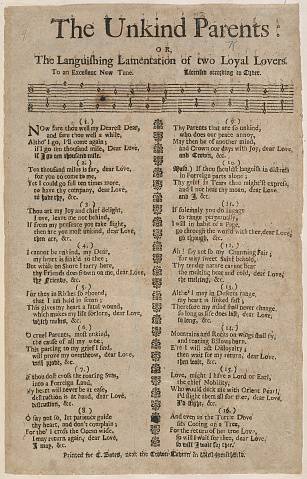 The Unkind Parents:
OR,
The Languishing Lamentation of two Loyal Lovers.
To an Excellent New Tune. Licensed according to Order.
(1.)
NOw fare thou well my Dearest Dear,
and fare thou well a while,
Altho' I go, I'll come again;
if I go ten thousand mile, Dear Love,
if I go ten thousand mile.
(2.)
Ten thousand miles is far, dear Love,
for you to come to me,
Yet I could go full ten times more,
to have thy company, dear Love,
to have thy, &c.
(3.)
Thou art my Joy and chief delight,
I love, leave me not behind,
If from my presence you take flight,
then are you most unkind, dear Love,
then are, &c.
(4.)
I cannot be unkind, my Dear,
my heart is linkt to thee;
But while on Saint
thy Friends, &c.
(5.)
For thee is
that I am held in scorn;
This gives my heart a fatal wound,
which makes my life forlorn, dear Love,
which makes, &c.
(6.)
O cruel Parents, most unkind,
the cause of all my woe;
This parting to my grief I find,
will prove my overthrow, dear Love,
will prove, &c.
(7.)
If thou dost cross the roaring Seas,
into a Foreign Land,
My heart will never be at ease,
destruction is at hand, dear Love,
destruction, &c.
(8.)
O say not so, let patience guide
thy heart, and don't complain;
For tho' I cross the Ocean wide,
I may return again, dear Love,
I may, &c.
(9.)
Thy Parents that are so unkind,
who does our peace annoy,
May then be of another mind,
and Crown our days with Joy; dear Love,
and Crown, &c.
(10.)
if thou shouldst languish in distress
in Foreign parts alone;
Thy grief in Tears thou might'st express,
and I not hear thy moan, dear Love,
and I, &c.
(11.)
If solemnly you do
to range perpetually,
I will in habit of a Page,
go through the world with thee, dear Love,
go through, &c.
(12.)
Ah! say not so my Charming Fair;
for why sweet Saint behold,
Thy tender nature can not bear
the melting heat and cold, dear Love,
the melting, &c.
(13.)
Altho' I may in Deserts range,
my heart is linked fast;
Therefore my mind shall never change,
so long as life does last, dear Love,
so long, &c.
(14.)
Mountains and Rocks on wings shall fly,
and roaring Billows burn,
E're I will act Disloyalty;
then wait for my return, dear Love,
then wait, &c.
(15.)
Love, might I have a Lord or Earl,
the chief Nobility,
Who would deck me with Orient Pearl,
I'd slight them all for thee, dear Love,
I'd slight, &c.
(16.)
And even as the Turtle Dove
sits Cooing on a Tree,
For the return of her true Love,
so will I wait for thee, dear Love,
so will I wait for thee.
Printed for C. Bates, next the Crown-Tavern in West-smithfield.